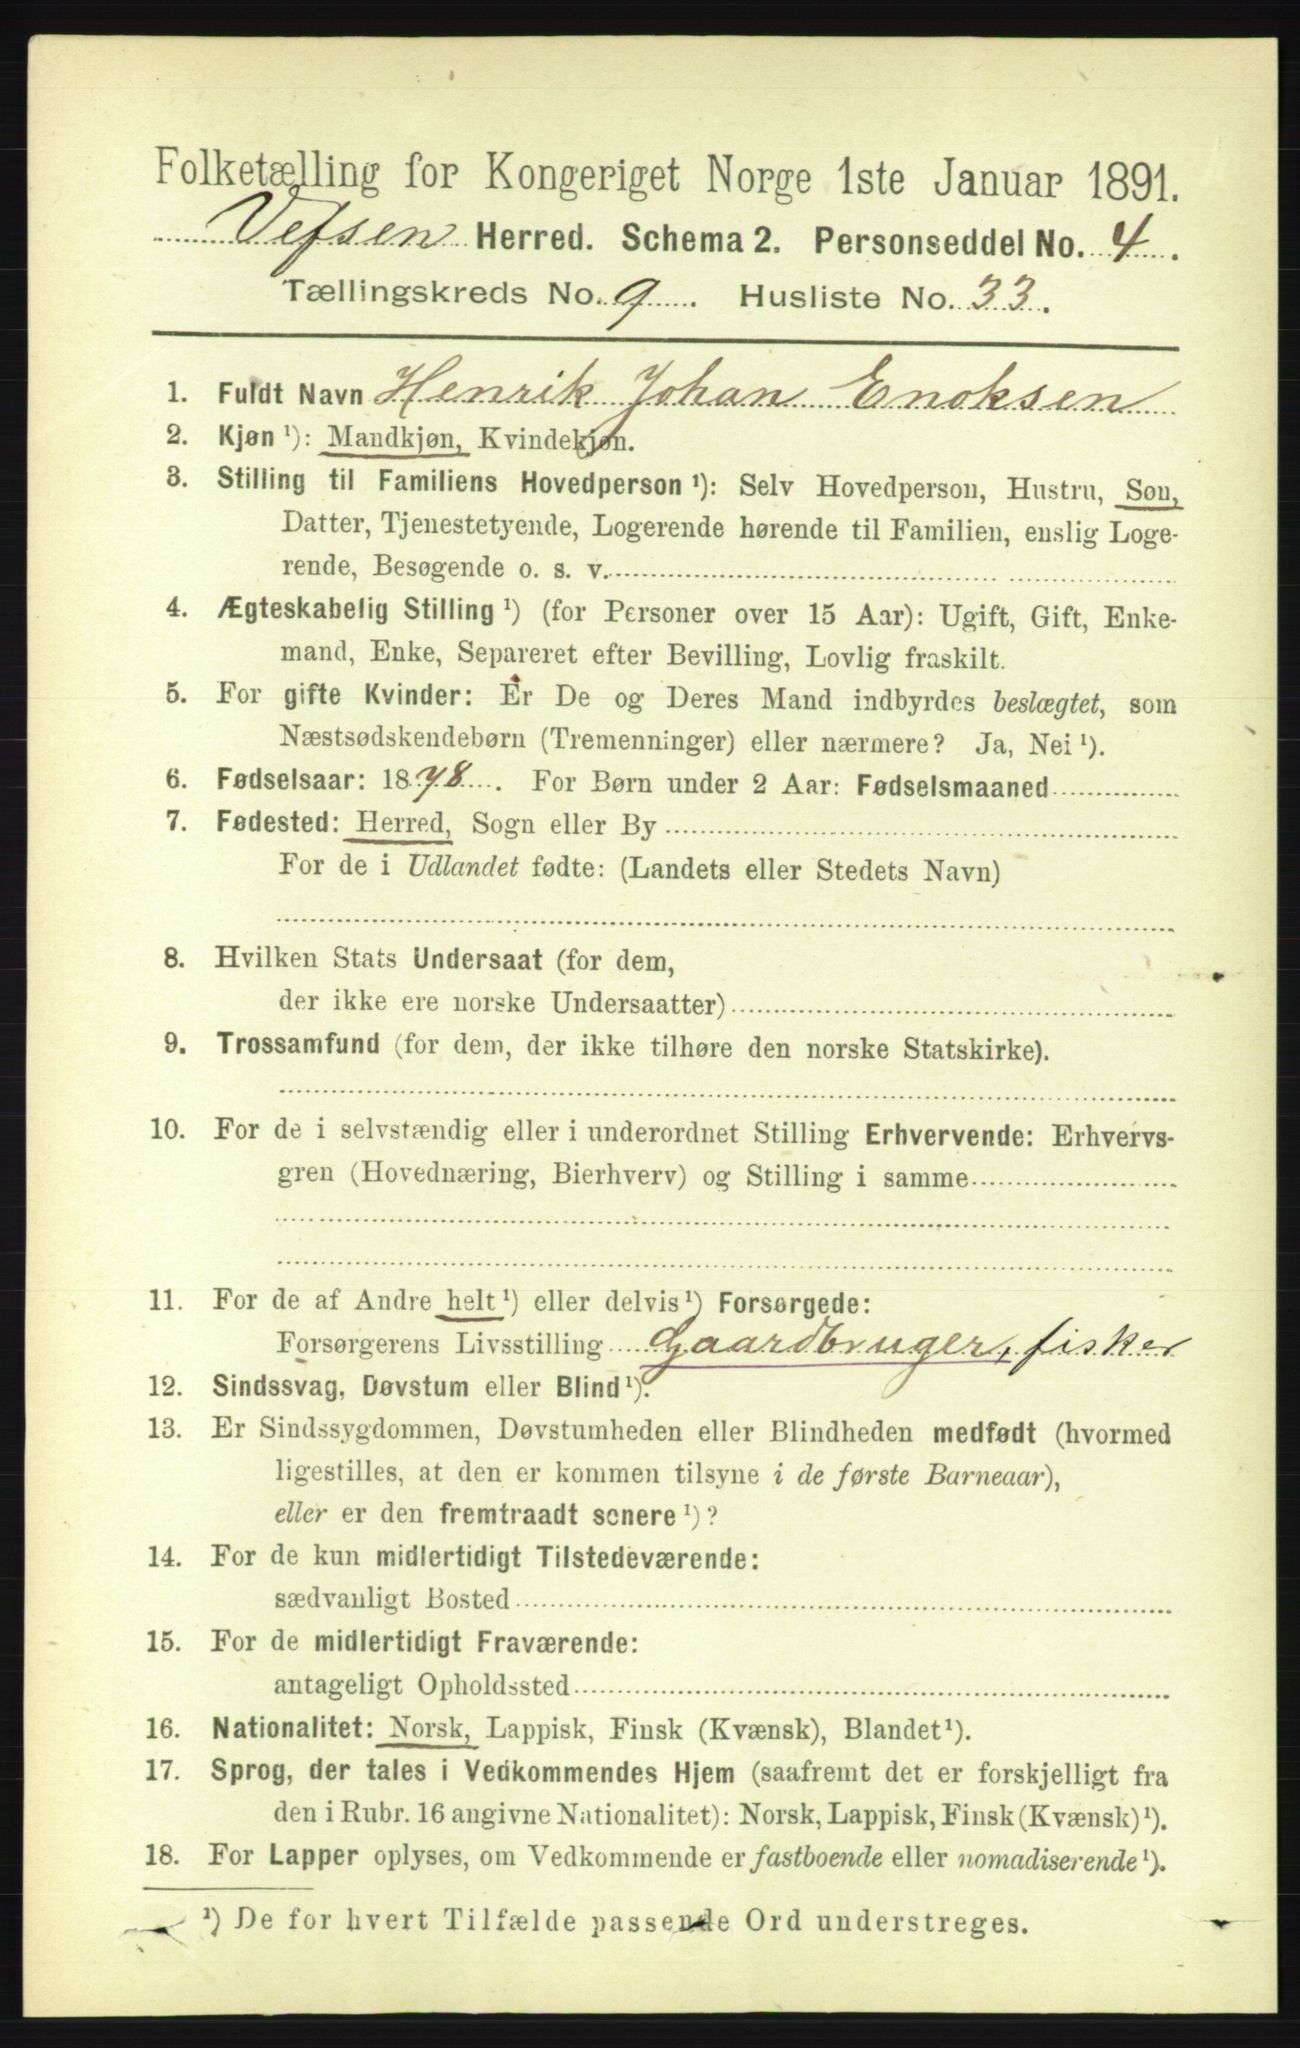 Folketælling for Kongeriget Norge 1ste Januar 1891.
Vefsen Herred. Schema 2. Personseddel No. 4.
Tællingskreds No. 9. Husliste No. 33.
1. Fuldt Navn Henrik Johan Enoksen
2. Kjøn ¹): Mandkjøn, Kvindekjøn.
3. Stilling til Familiens Hovedperson ¹): Selv Hovedperson, Hustru, Søn,
Datter, Tjenestetyende, Logerende hørende til Familien, enslig Loge-
rende, Besøgende o. s. v.
4. Ægteskabelig Stilling ¹) (for Personer over 15 Aar): Ugift, Gift, Enke-
mand, Enke, Separeret efter Bevilling, Lovlig fraskilt.
5. For gifte Kvinder: Er De og Deres Mand indbyrdes beslægtet, som
Næstsødskendebørn (Tremenninger) eller nærmere? Ja, Nei ¹).
6. Fødselsaar: 1878. For Børn under 2 Aar: Fødselsmaaned
7. Fødested: Herred, Sogn eller By
For de i Udlandet fødte: (Landets eller Stedets Navn)
8. Hvilken Stats Undersaat (for dem,
der ikke ere norske Undersaatter)
9. Trossamfund (for dem, der ikke tilhøre den norske Statskirke).
10. For de i selvstændig eller i underordnet Stilling Erhvervende: Erhvervs-
gren (Hovednæring, Bierhverv) og Stilling i samme
11. For de af Andre helt ¹) eller delvis ¹) Forsørgede:
Forsørgerens Livsstilling Gaardbruger, fisker
12. Sindssvag, Døvstum eller Blind ¹).
13. Er Sindssygdommen, Døvstumheden eller Blindheden medfødt (hvormed
ligestilles, at den er kommen tilsyne i de første Barneaar),
eller er den fremtraadt senere ¹)?
14. For de kun midlertidigt Tilstedeværende:
sædvanligt Bosted
15. For de midlertidigt Fraværende:
antageligt Opholdssted
16. Nationalitet: Norsk, Lappisk, Finsk (Kvænsk), Blandet ¹).
17. Sprog, der tales i Vedkommendes Hjem (saafremt det er forskjelligt fra
den i Rubr. 16 angivne Nationalitet): Norsk, Lappisk, Finsk (Kvænsk) ¹).
18. For Lapper oplyses, om Vedkommende er fastboende eller nomadiserende ¹).
¹) De for hvert Tilfælde passende Ord understreges.